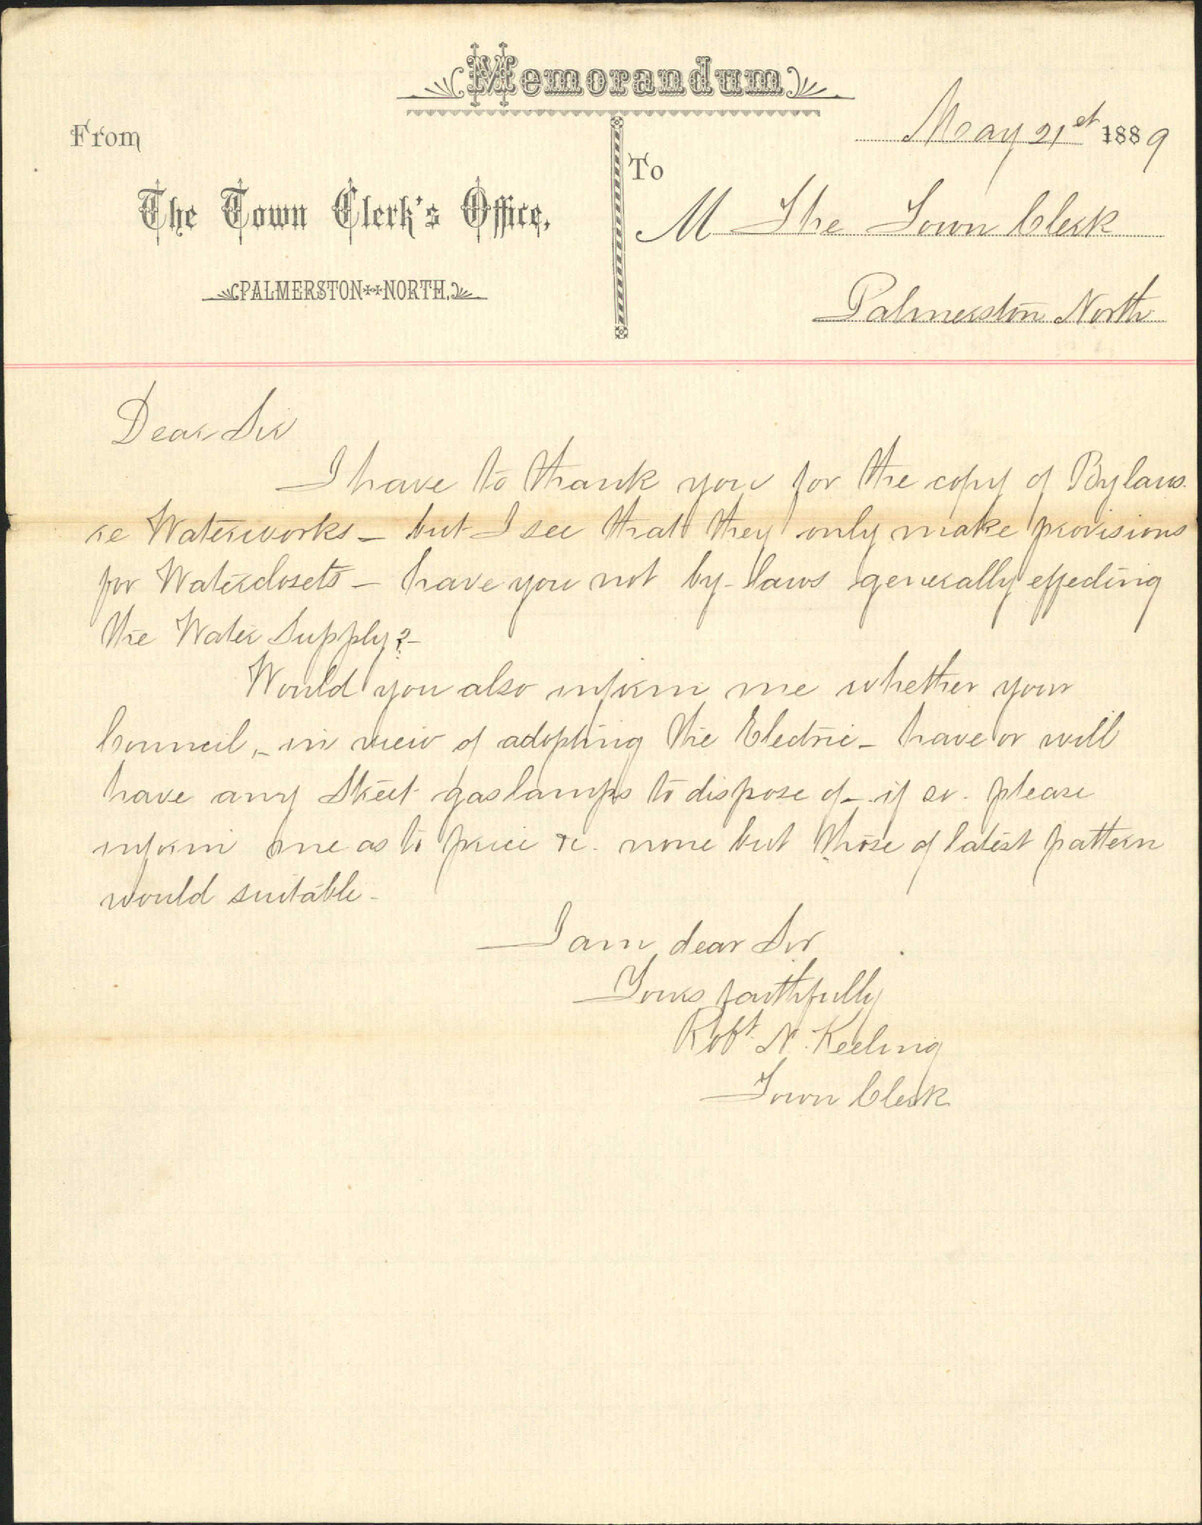 Memorandum
From
The Town Clerk's Office,
PALMERSTON NORTH.
May 21st 1889
To
M The Town Clerk
Palmerston North
Dear Sir
I have to thank you for the copy of Bylaws
re Waterworks – but I see that they only make provisions
for Waterclosets – have you not by-laws generally effecting
the Water Supply?–
Would you also inform me whether your
Council, – in veiw of adopting the Electric – have or will
have any Street gas lamps to dispose of – if so. please
inform me as to price &c. none but those of latest pattern
would suitable –
I am dear Sir
Yours faithfully
Robt. N. Keeling
Town Clerk